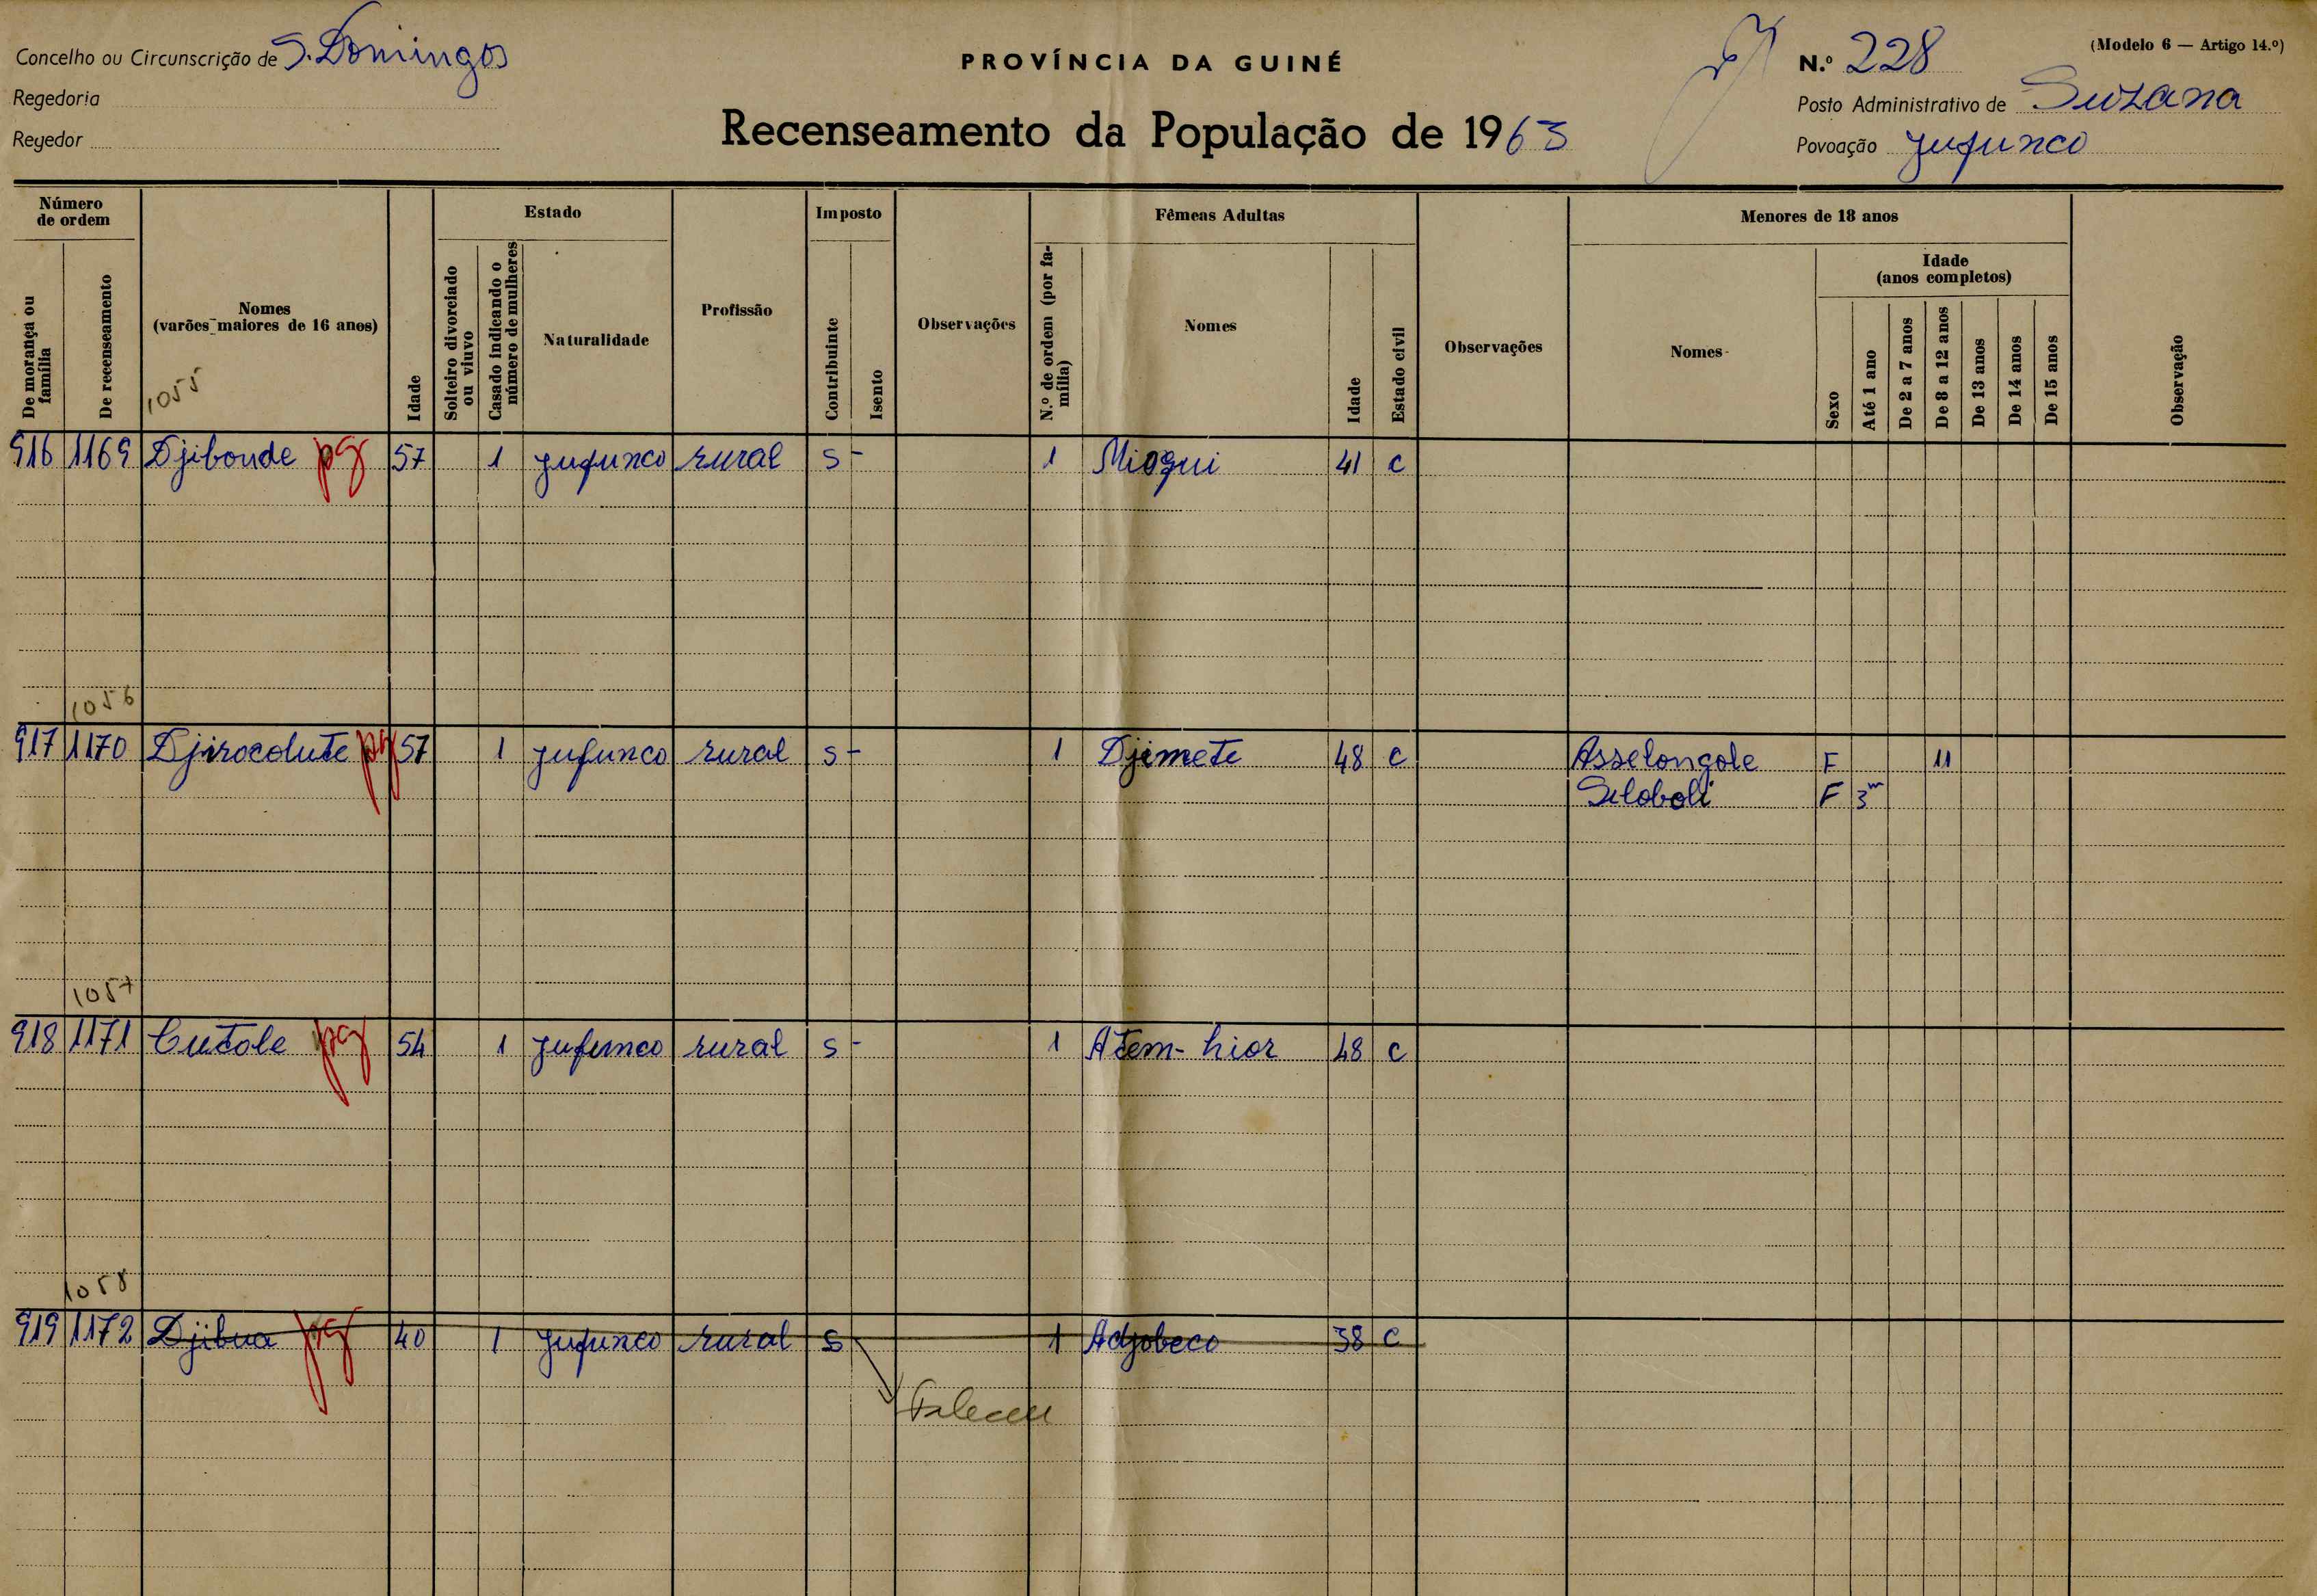 Concelho ou Circunscrição de S. Domingos
Regedoria
Regedor
PROVÍNCIA DA GUINÉ
Recenseamento da População de 1963
(Modelo 6 — Artigo 14.º)
N.º 228
Posto Administrativo de Suzana
Povoação Jufunco
Número de ordem
De morança ou família
De recenseamento
Nomes
(varões maiores de 16 anos)
Idade
Estado
Solteiro divorciado ou viuvo
Casado indicando o número de mulheres
Naturalidade
Profissão
Imposto
Contribuinte
Isento
Observações
Fêmeas Adultas
N.º de ordem (por família)
Nomes
Idade
Estado civil
Observações
Menores de 18 anos
Nomes
Idade
(anos completos)
Sexo
Até 1 ano
De 2 a 7 anos
De 8 a 12 anos
De 13 anos
De 14 anos
De 15 anos
Observação
1055
916 1169 Djibonde pg 57 1 Jufunco rural S - 1 Miogui 41 C
1056
917 1170 Djirocolute pg 57 1 Jufunco rural S - 1 Djemete 48 C Asselongole F 11
Seloboli F 3m
1057
918 1171 Cutole pg 54 1 Jufunco rural S - 1 Atem-hior 48 C
1058
919 1172 Djibua pg 40 1 Jufunco rural S 1 Adjobeco 38 C
Faleceu